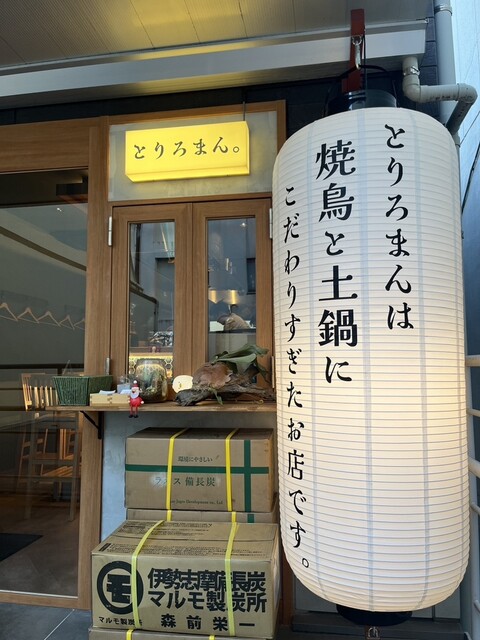 とりろまん。
とりろまんは
焼鳥と土鍋に
こだわりすぎたお店です。
環境にやさしい
ラオス備長炭
モ
伊勢志摩備長炭
マルモ製炭所
マルモ製炭所 森前栄一